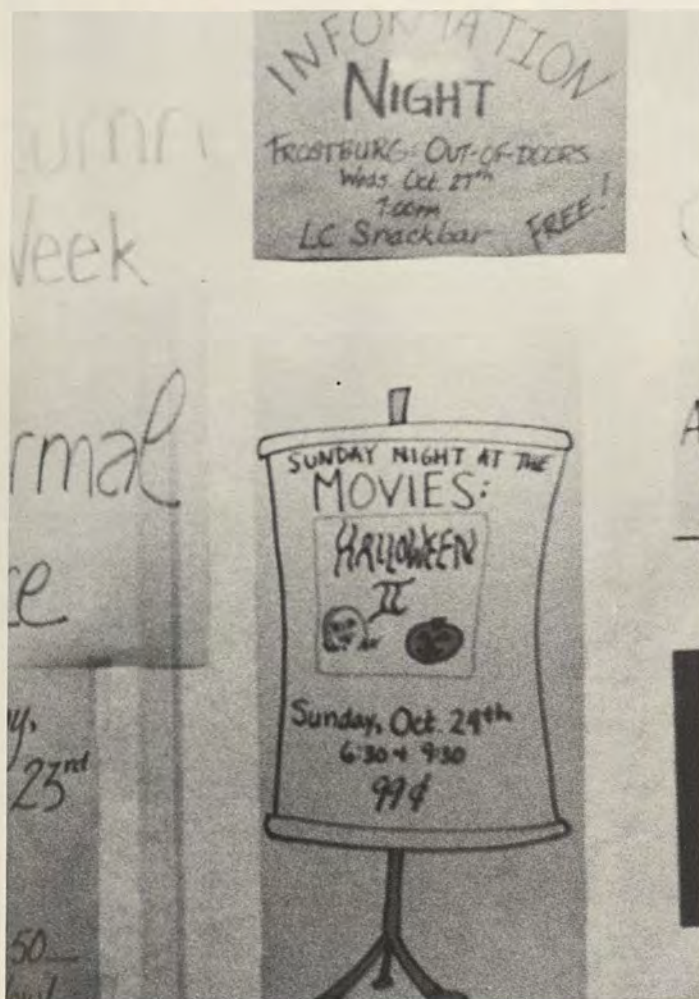 INFORMATION
NIGHT
FROSTBURG: OUT-OF-DOORS
Weds. Oct. 27th
7:00pm
LC Snackbar
FREE!
Week
rmal
ce
y,
23rd
50
SUNDAY NIGHT AT THE
MOVIES:
HALLOWEEN
II
Sunday, Oct. 24th
6:30 + 9:30
99¢
A